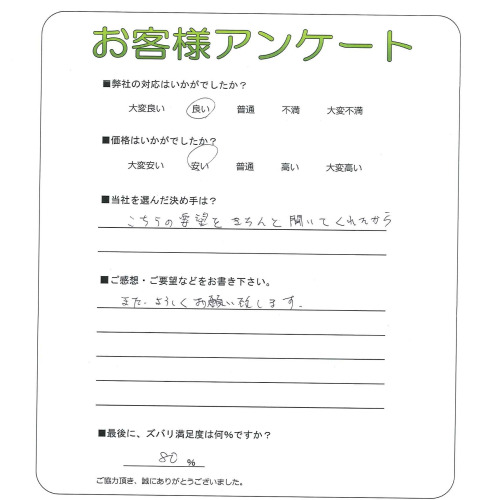 お客様アンケート
■弊社の対応はいかがでしたか?
大変良い 良い 普通 不満 大変不満
■価格はいかがでしたか?
大変安い 安い 普通 高い 大変高い
■当社を選んだ決め手は?
こちらの要望をきちんと聞いてくれたから
■ご感想・ご要望などをお書き下さい。
また、よろしくお願い致します。
■最後に、ズバリ満足度は何%ですか?
80 %
ご協力頂き、誠にありがとうございました。